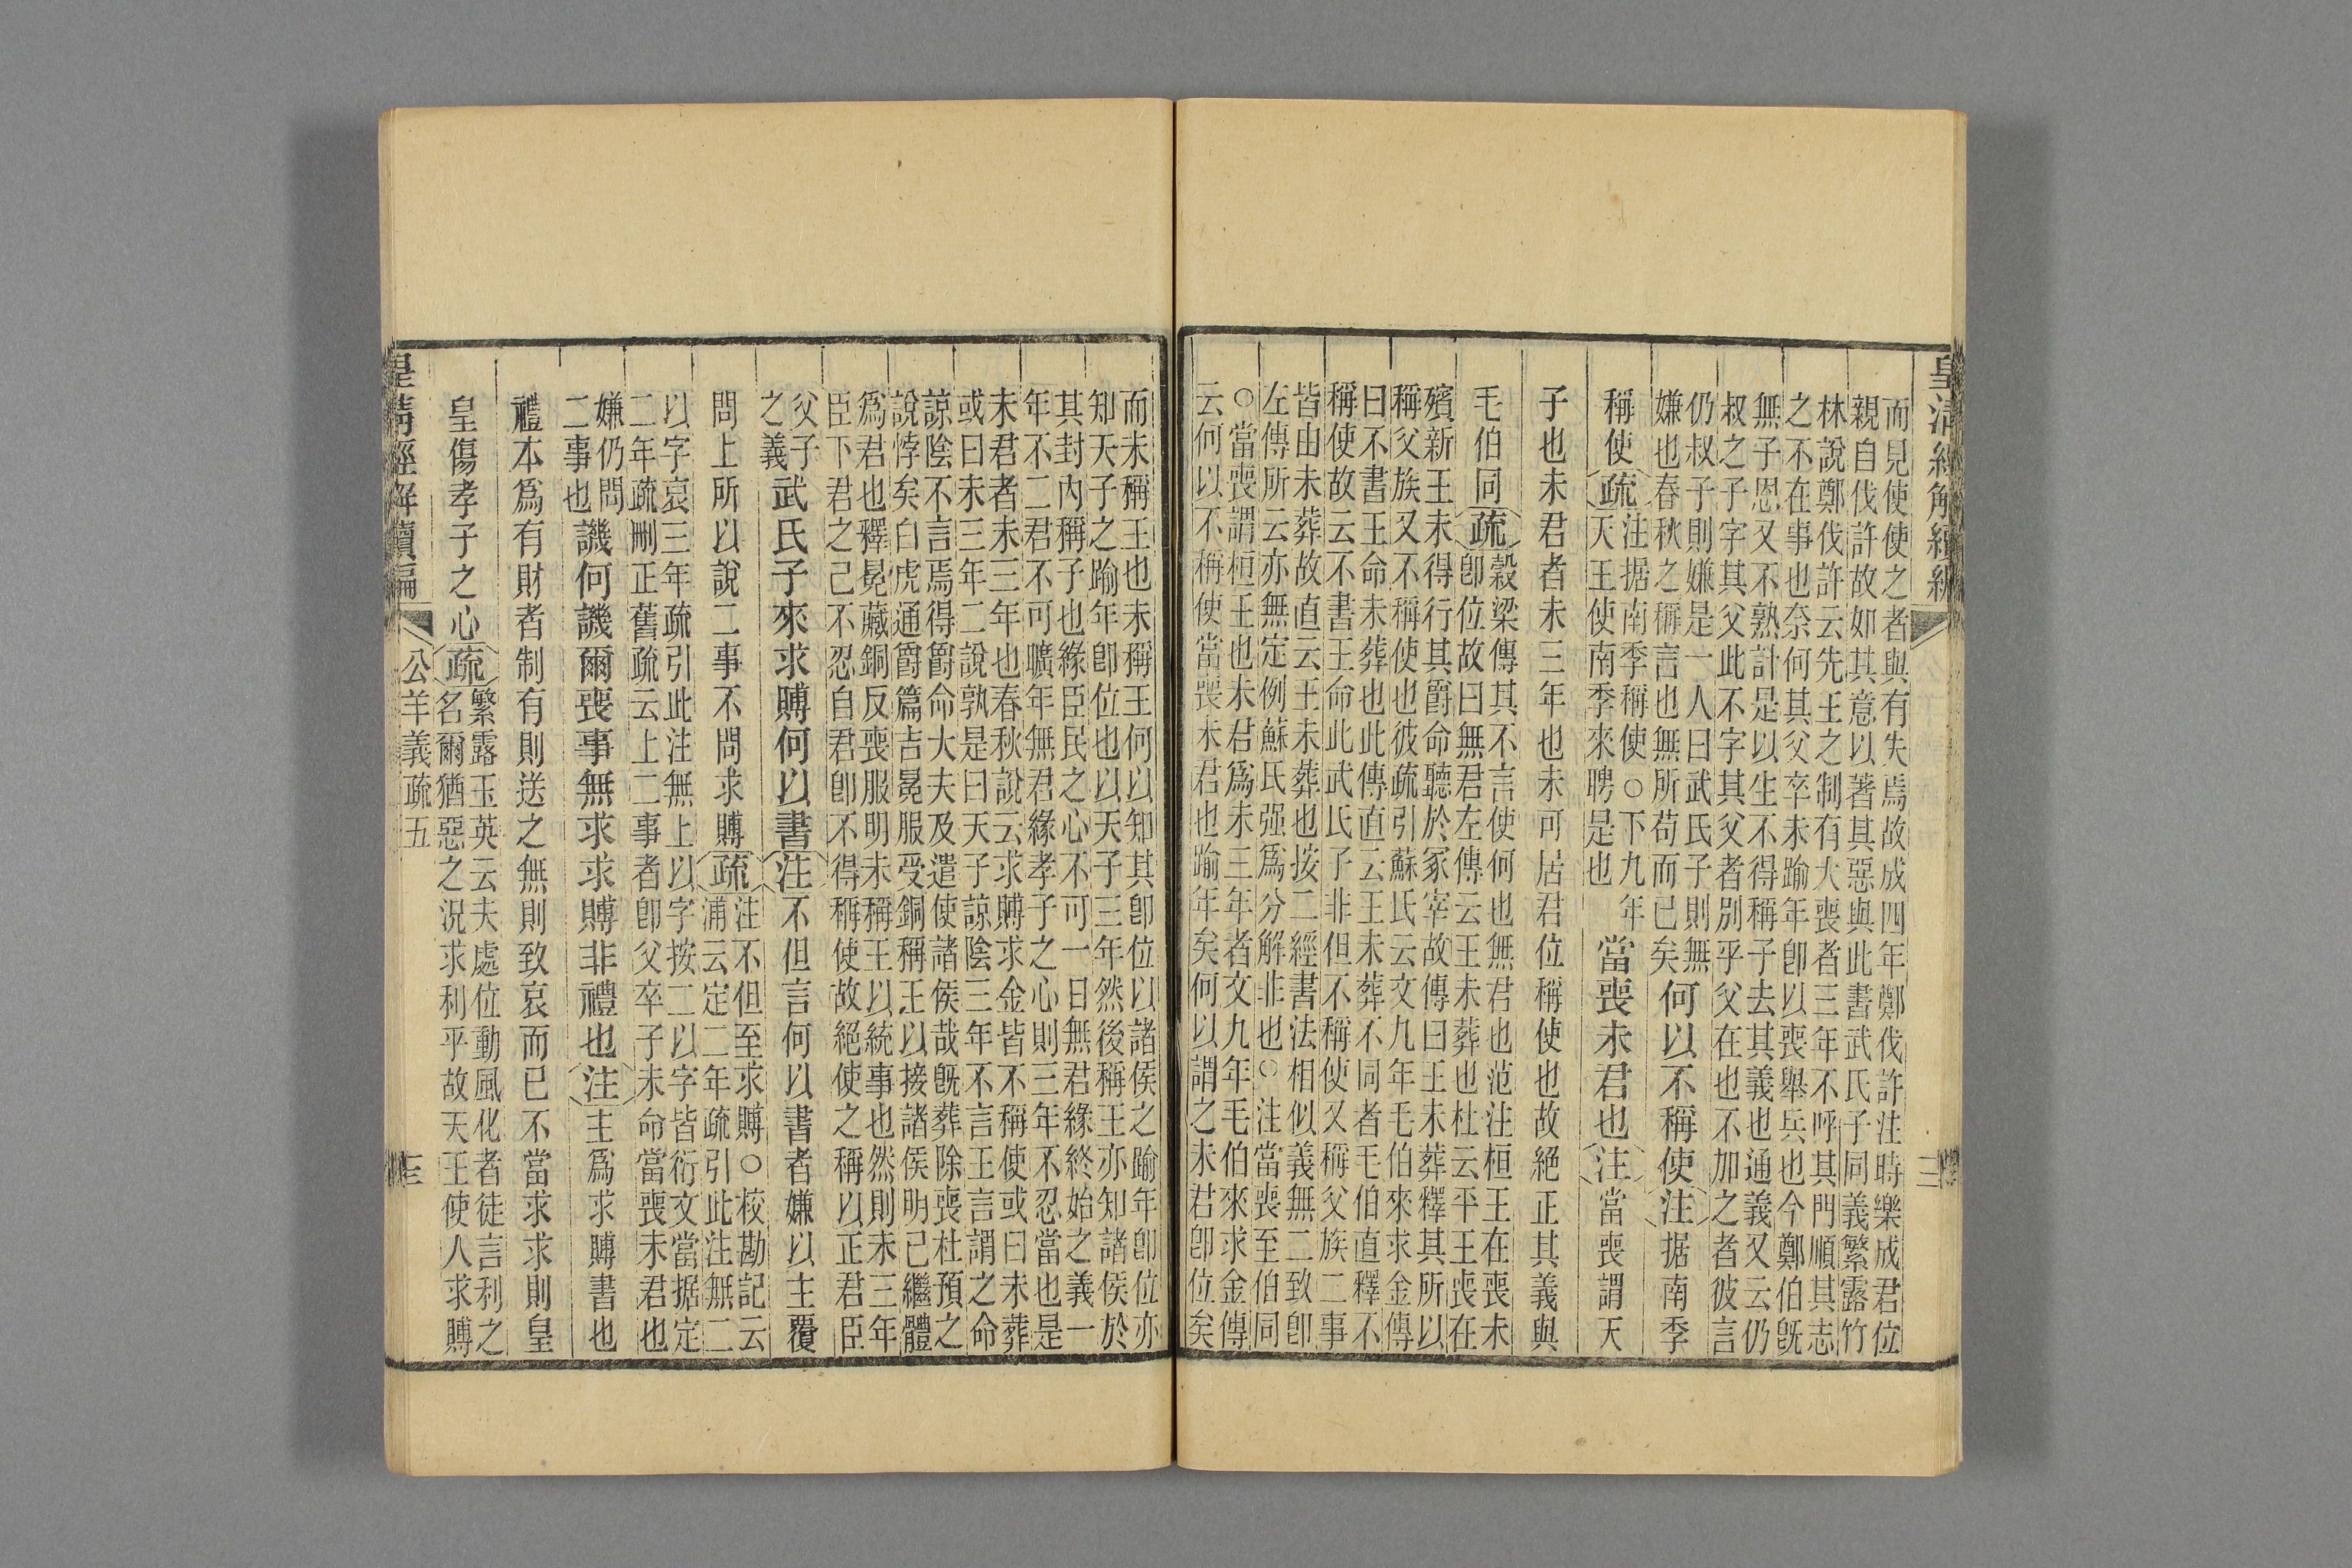 皇清經解續編
而見使使之者與有失焉故成四年鄭伐許注時樂成君位
親自伐許故如其意以著其惡與此書武氏子同義繁露竹
林說鄭伐許云先王之制有大喪者三年不呼其門順其志
之不在事也奈何其父卒未踰年卽以喪舉兵也今鄭伯旣
無子恩又不熟計是以生不得稱子去其義也通義又云仍
叔之子字其父此不字其父者別乎父在也不加之者彼言
仍叔子則嫌是一人曰武氏子則無
嫌也春秋之稱言也無所苟而已矣
何以不稱使注据南季
稱使疏
注据南季稱使○下九年
天王使南季來聘是也
當喪未君也注當喪謂天
子也未君者未三年也未可居君位稱使也故絕正其義與
毛伯同疏
穀梁傳其不言使何也無君也范注桓王在喪未
卽位故曰無君左傳云王未葬也杜云平王喪在
殯新王未得行其爵命聽於冢宰故傳曰王未葬釋其所以
稱父族又不稱使也彼疏引蘇氏云文九年毛伯來求金傳
曰不書王命未葬也此傳直云王未葬不同者毛伯直釋不
稱使故云不書王命此武氏子非但不稱使又稱父族二事
皆由未葬故直云王未葬也按二經書法相似義無二致卽
左傳所云亦無定例蘇氏强爲分解非也○注當喪至伯同
○當喪謂桓王也未君爲未三年者文九年毛伯來求金傳
云何以不稱使當喪未君也踰年矣何以謂之未君卽位矣
而未稱王也未稱王何以知其卽位以諸侯之踰年卽位亦
知天子之踰年卽位也以天子三年然後稱王亦知諸侯於
其封內稱子也緣臣民之心不可一日無君緣終始之義一
年不二君不可曠年無君緣孝子之心則三年不忍當也是
未君者未三年也春秋說云求賻求金皆不稱使或曰未葬
或曰未三年二說孰是曰天子諒陰三年不言王言謂之命
諒陰不言焉得爵命大夫及遣使諸侯哉旣葬除喪杜預之
說悖矣白虎通爵篇吉冕服受銅稱王以接諸侯明已繼體
爲君也釋冕藏銅反喪服明未稱王以統事也然則未三年
臣下君之己不忍自君卽不得稱使故絕使之稱以正君臣
父子
之義
武氏子來求賻何以書注不但言何以書者嫌以主覆
問上所以說二事不問求賻疏
注不但至求賻○校勘記云
浦云定二年疏引此注無二
以字哀三年疏引此注無上以字按二以字皆衍文當据定
二年疏刪正舊疏云上二事者卽父卒子未命當喪未君也
嫌仍問
二事也
譏何譏爾喪事無求求賻非禮也注主爲求賻書也
禮本爲有財者制有則送之無則致哀而已不當求求則皇
皇傷孝子之心疏
繁露玉英云夫處位動風化者徒言利之
名爾猶惡之況求利乎故天王使人求賻
皇清經解續編
公羊義疏五